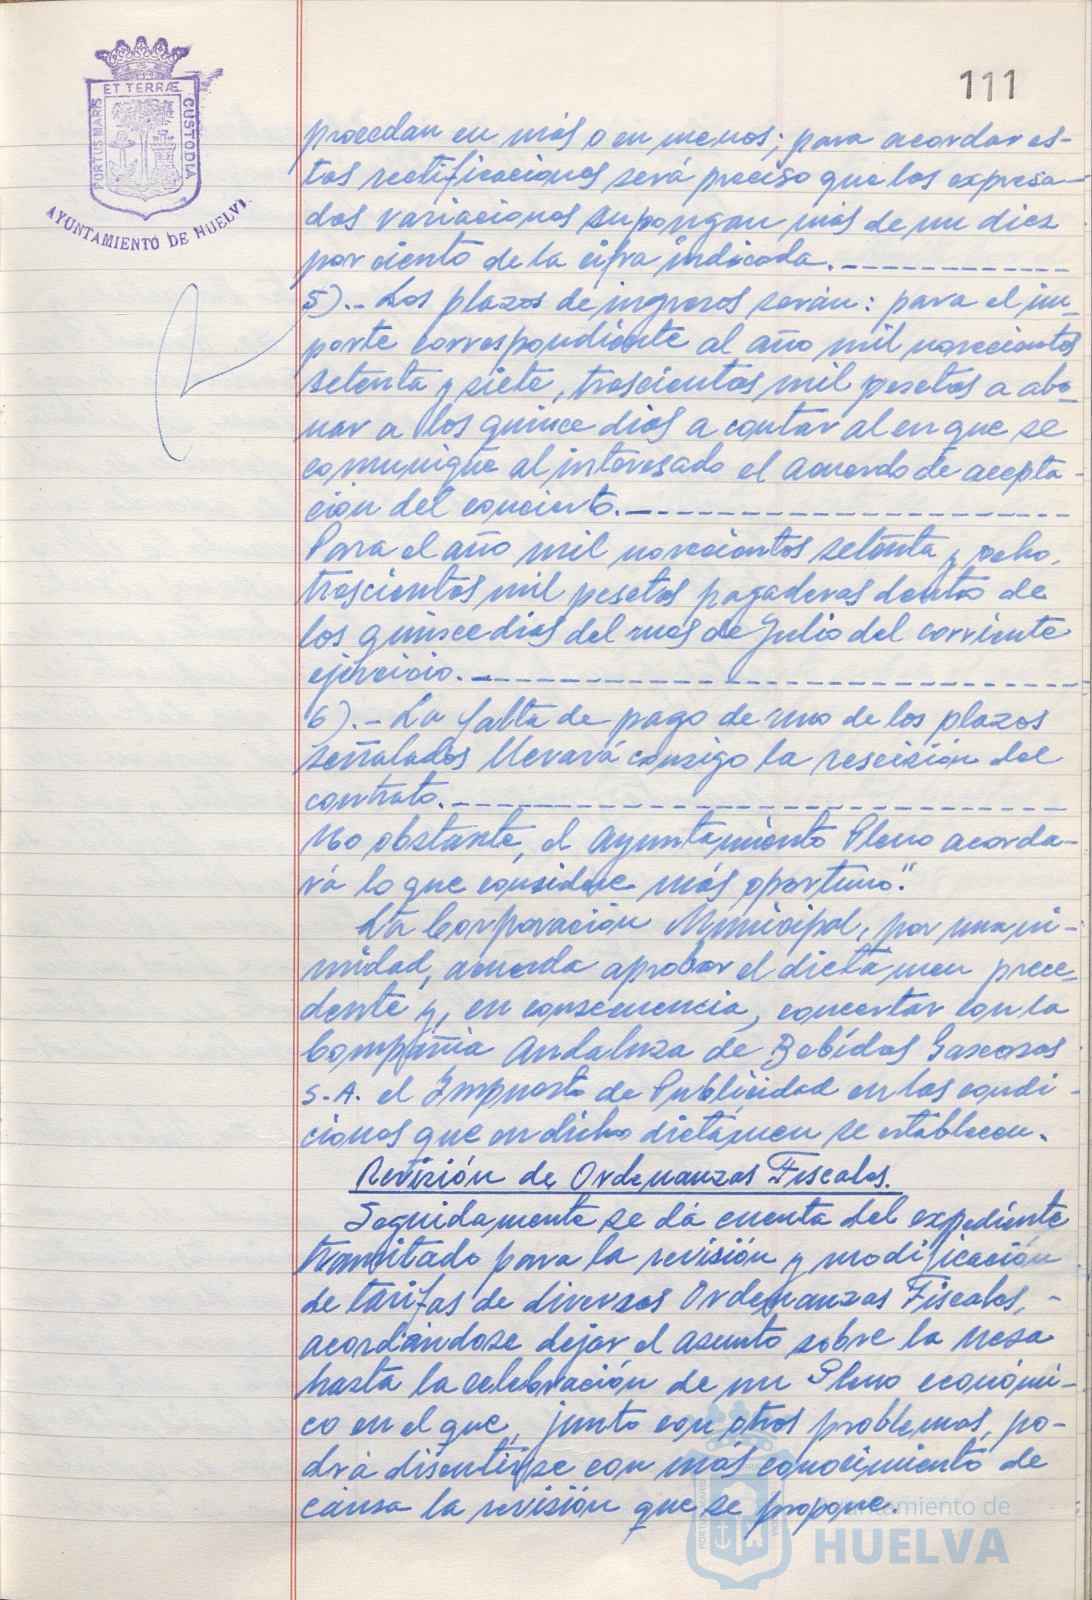 111
PORTUS MARIS ET TERRÆ CUSTODIA
AYUNTAMIENTO DE HUELVA
procedan en más o en menos; para acordar es-
tas rectificaciones será preciso que las expresa-
das variaciones supongan más de un diez
por ciento de la cifra indicada.
5).- Los plazos de ingresos serán: para el im-
porte correspondiente al año mil novecientos
setenta y siete, trescientas mil pesetas a abo-
nar a los quince días a contar al en que se
comunique al interesado el acuerdo de acepta-
ción del concierto.
Para el año mil novecientos setenta y ocho,
trescientas mil pesetas pagaderas dentro de
los quince días del mes de Julio del corriente
ejercicio.
6).- La falta de pago de uno de los plazos
señalados llevará consigo la rescisión del
contrato.
No obstante, el Ayuntamiento Pleno acorda-
rá lo que considere más oportuno".
La Corporación Municipal, por unani-
midad, acuerda aprobar el dictamen prece-
dente y, en consecuencia, concertar con la
Compañia Andaluza de Bebidas Gaseosas
S.A. el Impuesto de Publicidad en las condi-
ciones que en dicho dictámen se establecen.
Revisión de Ordenanzas Fiscales.
Seguidamente se dá cuenta del expediente
tramitado para la revisión y modificación
de tarifas de diversas Ordenanzas Fiscales, -
acordándose dejar el asunto sobre la mesa
hasta la celebración de un Pleno económi-
co en el que, junto con otros problemas, po-
drá discutirse con más conocimiento de
causa la revisión que se propone.
Ayuntamiento de
HUELVA